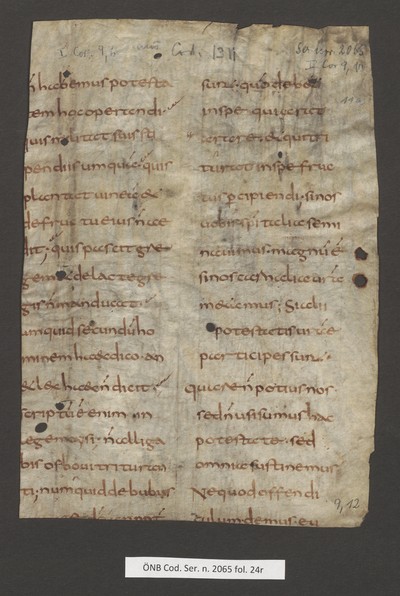 I Cor. 9,6
Cod. 1311
Ser. n. 2065
n̄ habemus potesta
tem hoc operandi·
quis militat suis sti
pendiis umquā· quis
plantat uineā &
de fructu eius n̄
dit; quis pascit gre
gem & de lacte gre
gis n̄ manducat·
umquid secundū ho
minem haec dico· an
& lex haec n̄ dicit;
scriptū ē enim in
lege moysi· n̄ alliga
bis os boui trituran
ti; numquid de bubus
sunt· quō debet
in spe qui arat
arare· & qui tri
turat in spe fruc
tus pcipiendi· si nos
uobis spiritalia semi
nauimus· magnū ē
si nos carnalia urā
metamus; Si alii
potestatis urae
participes sunt·
quare n̄ potius nos·
sed n̄ usi sumus hac
potestate· sed
omnia sustinemus
Ne quod offendi
culum demus eu
9, 12
ÖNB Cod. Ser. n. 2065 fol. 24r